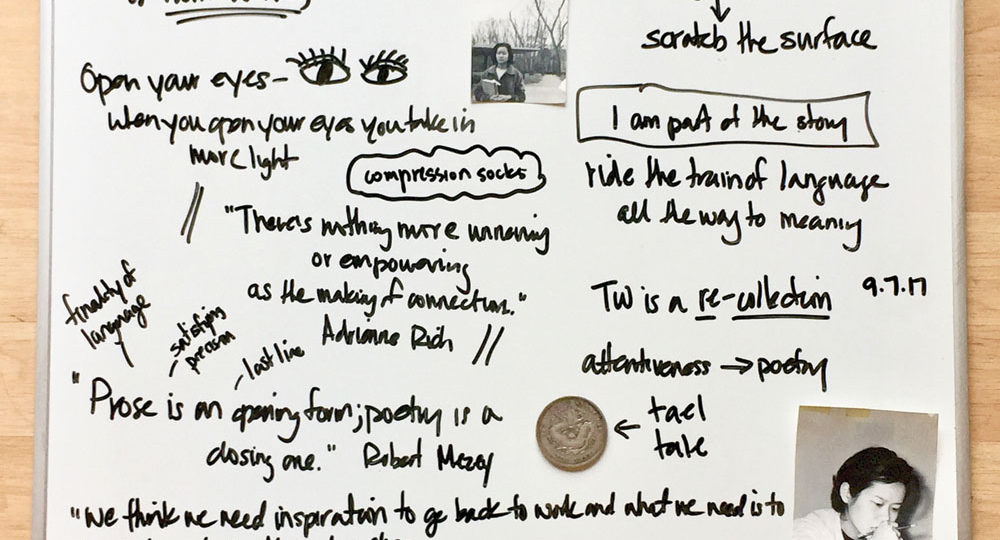 scratch the surface
Open your eyes—
When you open your eyes you take in
more light
I am part of the story
compression socks
ride the train of language
all the way to meaning
"There's nothing more unnerving
or empowering
as the making of connections."
Adrienne Rich
TW is a re-collection
9.7.17
finality of
language
satisfying
precision
last line
attentiveness → poetry
"Prose is an opening form; poetry is a
closing one." Robert Mezey
← tael
tale
"We think we need inspiration to go back to work and what we need is to